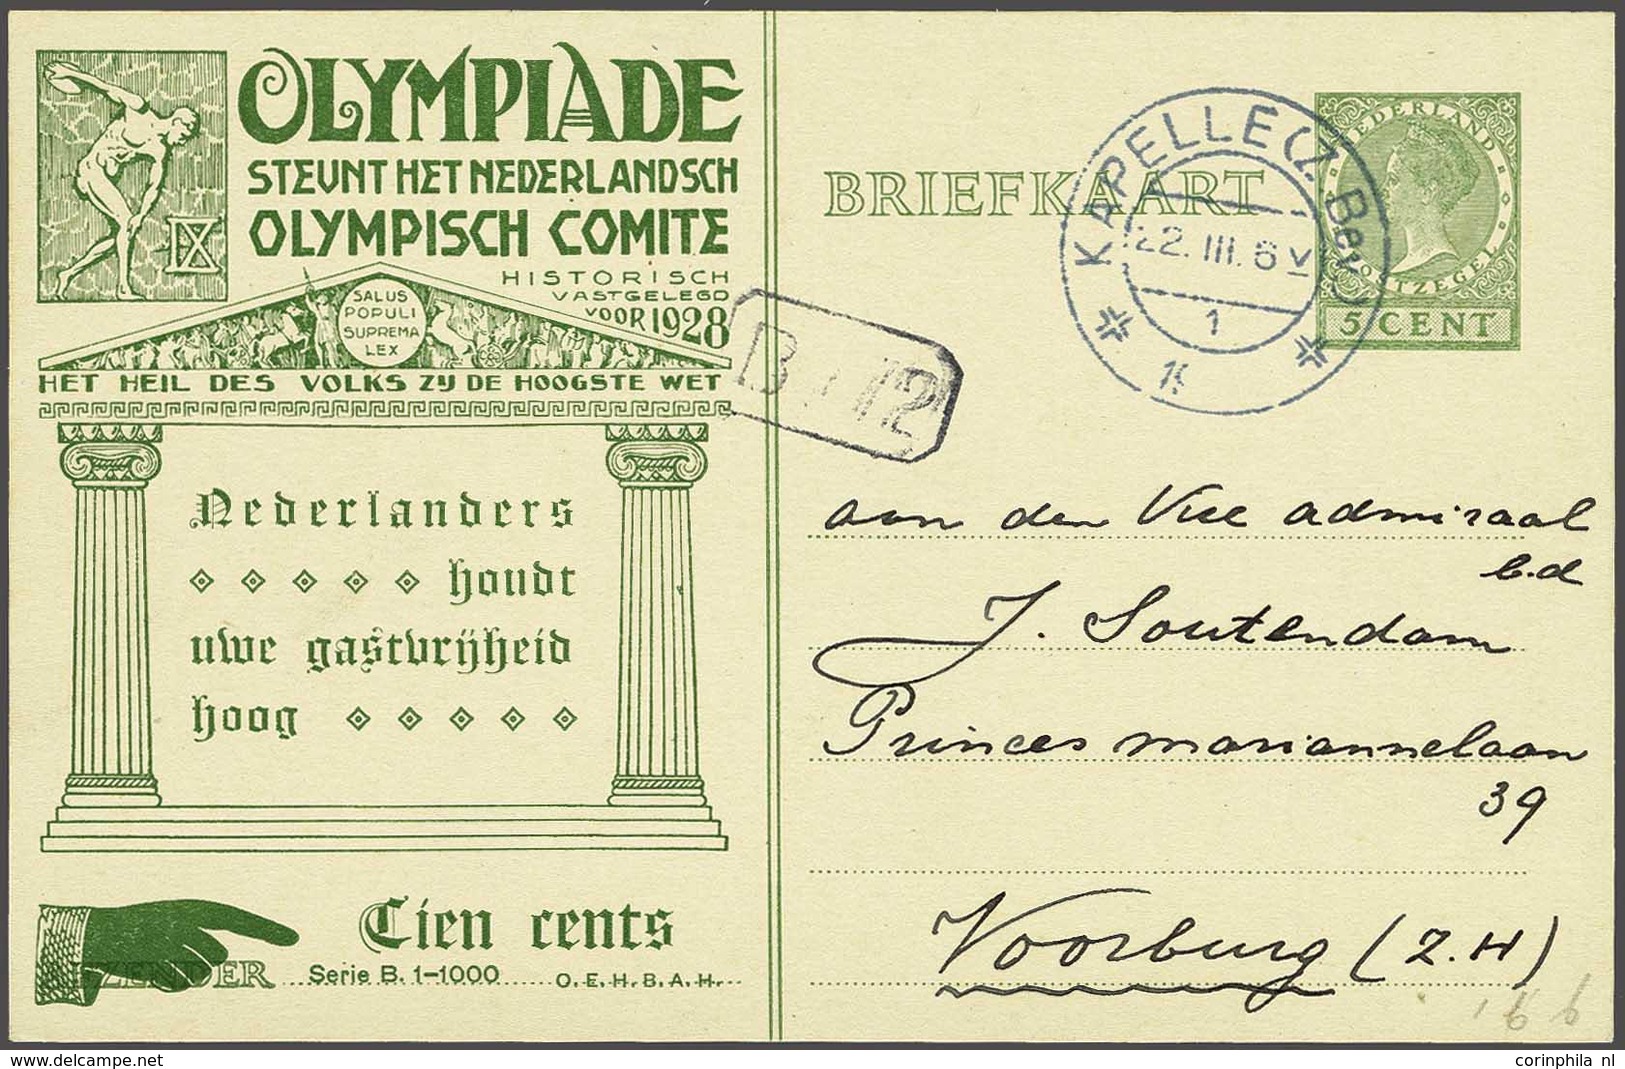 OLYMPIADE
STEUNT HET NEDERLANDSCH
OLYMPISCH COMITE
IX
HISTORISCH
VASTGELEGD
VOOR 1928
SALUS
POPULI
SUPREMA
LEX
HET HEIL DES VOLKS ZIJ DE HOOGSTE WET
Nederlanders
houdt
uwe gastvrijheid
hoog
Tien cents
Serie B. 1-1000 O.E.H.B.A.H.
BRIEFKAART
NEDERLAND
POSTZEGEL
5 CENT
KAPELLE (Z. Bev.)
22.III.6 V
1
aan den Vice admiraal
b.d
J. Soutendam
Princes mariannelaan
39
Voorburg (Z.H)
corinphila nl